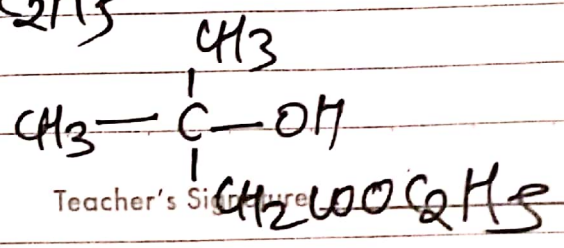 C2H5
CH3
|
CH3—C—OH
|
Teacher's Signature CH2COOC2H5